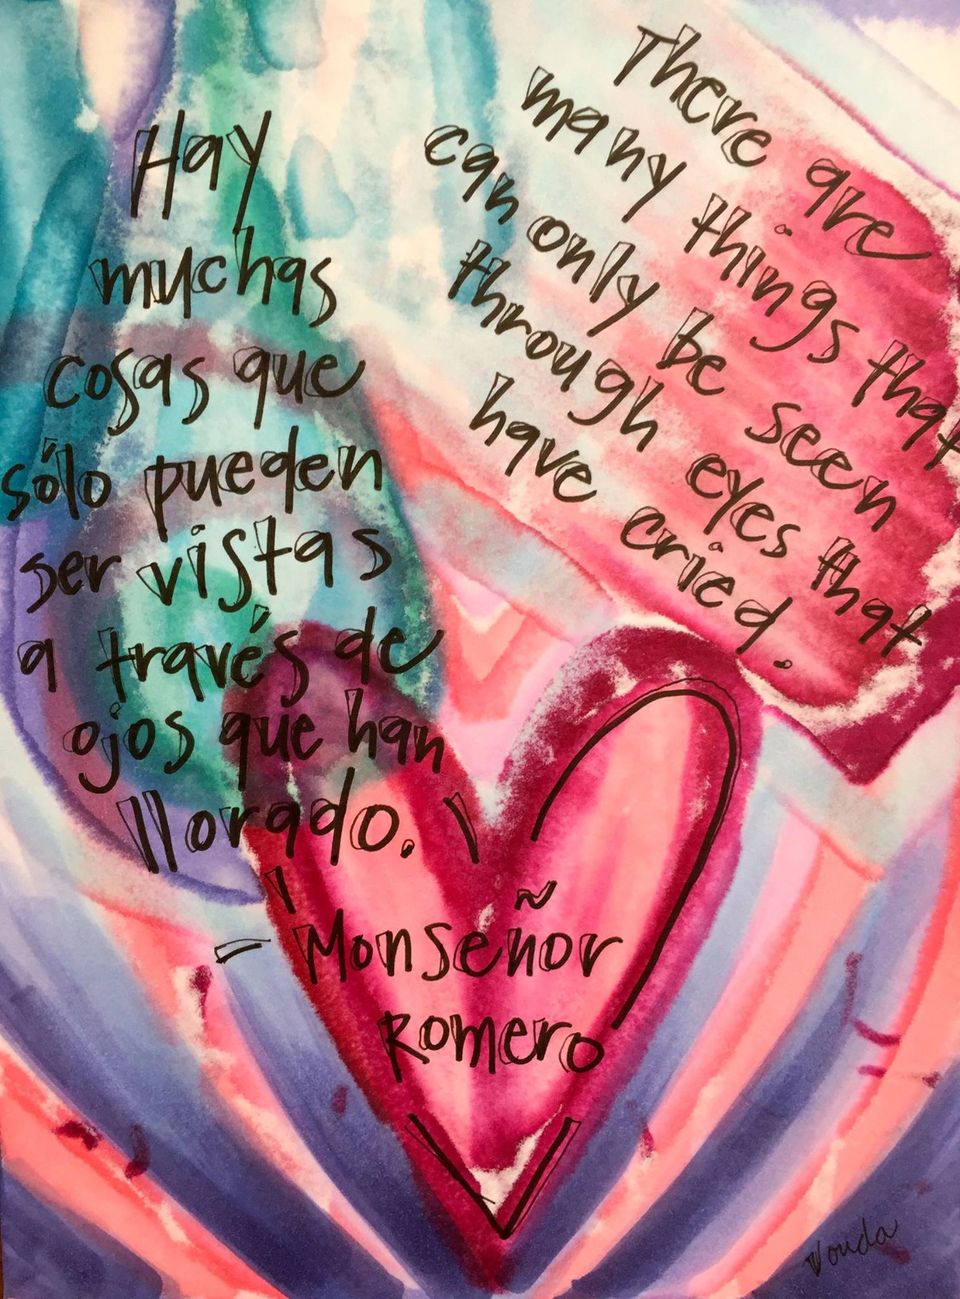 Hay
muchas
cosas que
sólo pueden
ser vistas
a través de
ojos que han
llorado.
- Monseñor
Romero
There are
many things that
can only be seen
through eyes that
have cried.
Vonda